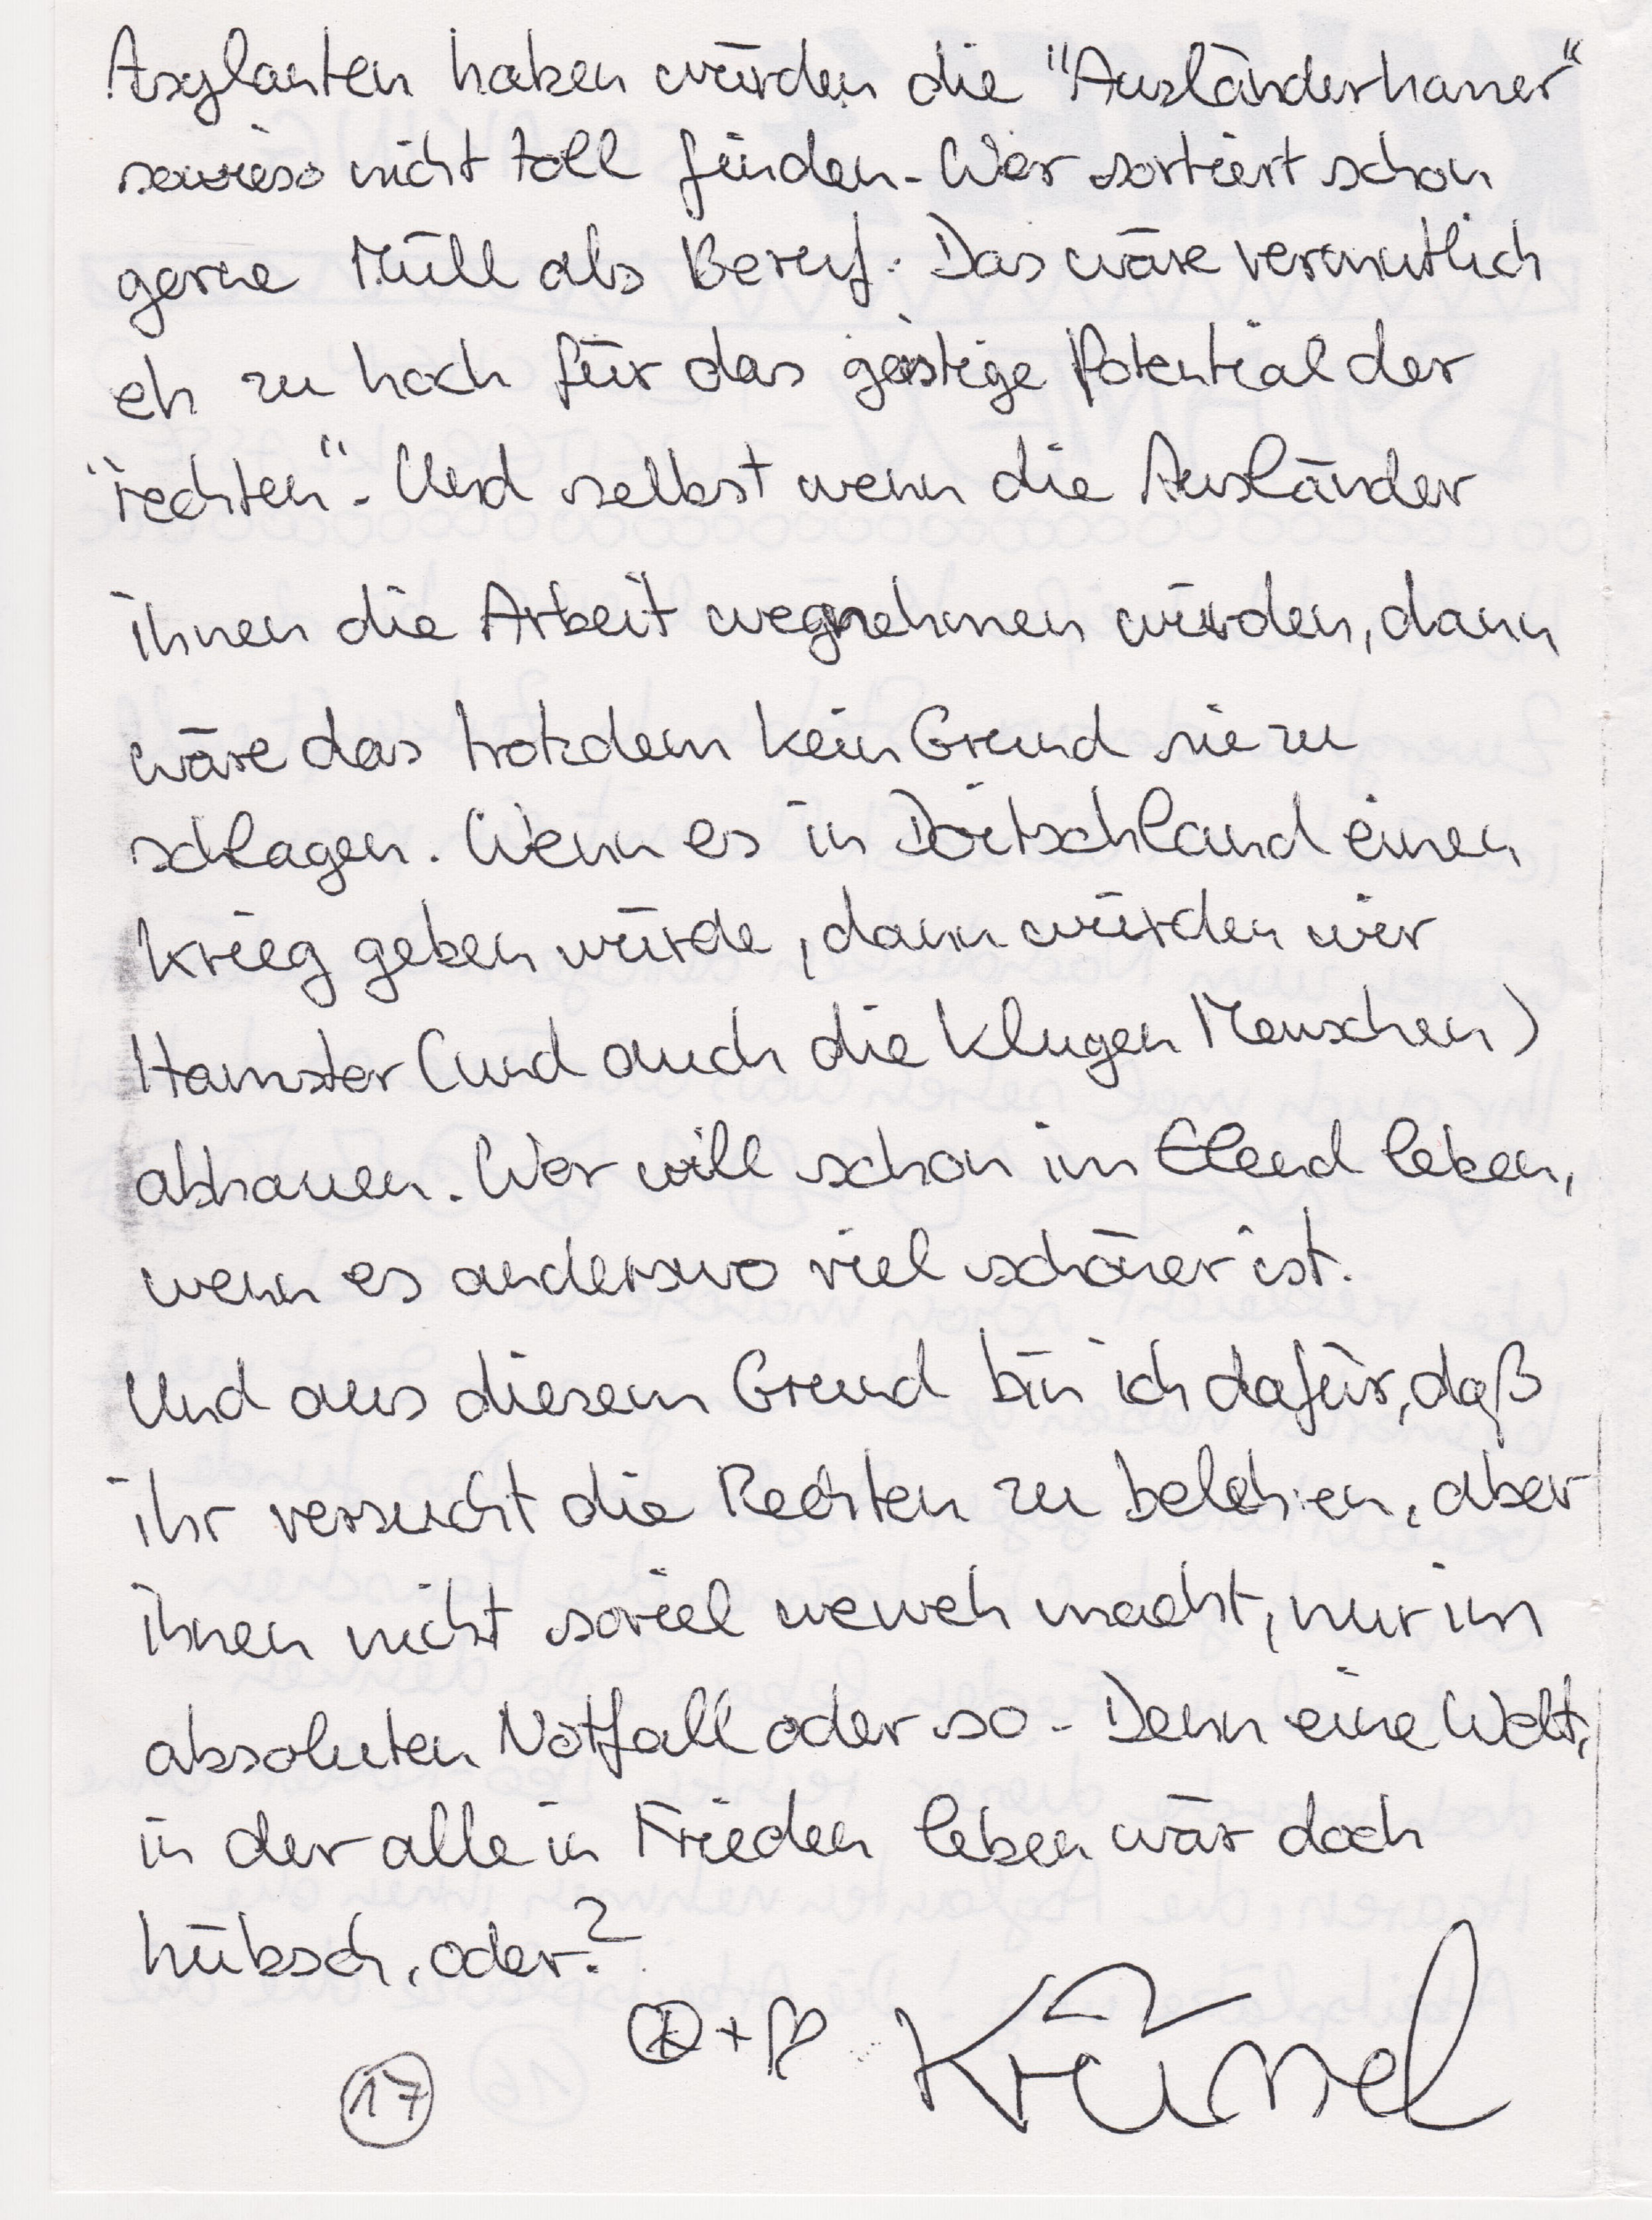 Asylanten haben würden die "Ausländerhauer"
sowieso nicht toll finden. Wer sortiert schon
gerne Müll als Beruf. Das wäre vermutlich
eh zu hoch für das geistige Potential der
"rechten". Und selbst wenn die Ausländer
ihnen die Arbeit wegnehmen würden, dann
wäre das trotzdem kein Grund sie zu
schlagen. Wenn es in Doitschland einen
Krieg geben würde, dann würden wir
Hamster (und auch die klugen Menschen)
abhauen. Wer will schon im Elend leben,
wenn es anderswo viel schöner ist.
Und aus diesem Grund bin ich dafür, daß
ihr versucht die Rechten zu belehren, aber
ihnen nicht soviel weweh macht, nur im
absoluten Notfall oder so - Denn eine Welt,
in der alle in Frieden leben wär doch
hübsch, oder?
Krümel
17